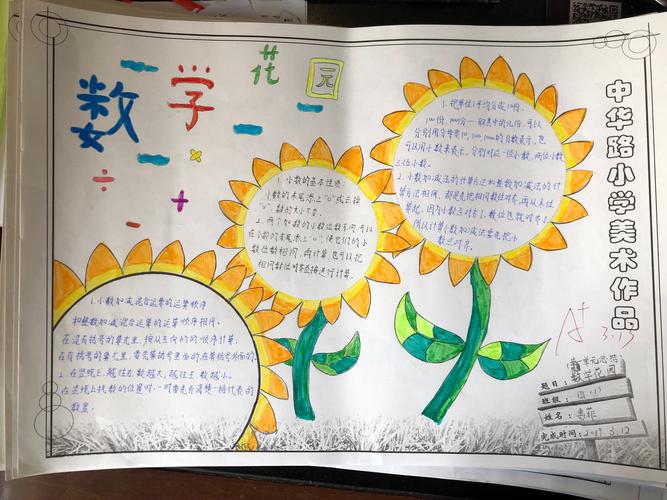 数学花园
1. 把单位1平均分成10份、
100份、1000份……取其中的几份,可以
分别用分母是10、100、1000的分数表示,也
可以用小数来表示,分别对应一位小数、两位小数
三位小数。
2. 小数加减法的计算方法和整数加减法的计
算方法相同,都是先把相同数位对齐,再从末位
算起。因为小数点对齐了,数位也就对齐了,
所以计算小数加减法要先把小
数点对齐。
1. 小数的基本性质:
小数的末尾添上“0”或去掉
“0”,数的大小不变。
2. 两个加数的小数位数不同,可以
在小数的末尾添上“0”,使它们的小
数位数相同,再计算,也可以把
相同数位对齐直接进行计算。
1. 小数加减混合运算的运算顺序
和整数加减混合运算的运算顺序相同。
在没有括号的算式里,按从左向右的顺序计算,
在有括号的算式里,要先算括号里面的,在算括号外面的。
2. 在竖线上,越往右,数越大,越往左,数越小。
在竖线上找数的位置时,一定要先看清楚一格代表的
数量。
中华路小学美术作品
A+
3.13
题目:
单元总结
数学花园
班级:
四.
姓名:
完成时间:2017.3.12